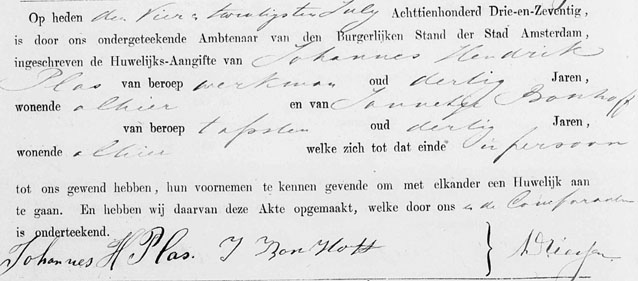 Op heden den Vier en twintigsten July Achttienhonderd Drie-en-Zeventig,
is door ons ondergeteekende Ambtenaar van den Burgerlijken Stand der Stad Amsterdam,
ingeschreven de Huwelijks-Aangifte van Johannes Hendrik
Plas van beroep werkman oud dertig Jaren,
wonende alhier en van Bonhoff
van beroep oud dertig Jaren,
wonende alhier welke zich tot dat einde in persoon
tot ons gewend hebben, hun voornemen te kennen gevende om met elkander een Huwelijk aan
te gaan. En hebben wij daarvan deze Akte opgemaakt, welke door ons en de Comparanten
is onderteekend.
Johannes H Plas. J Bon Hoff